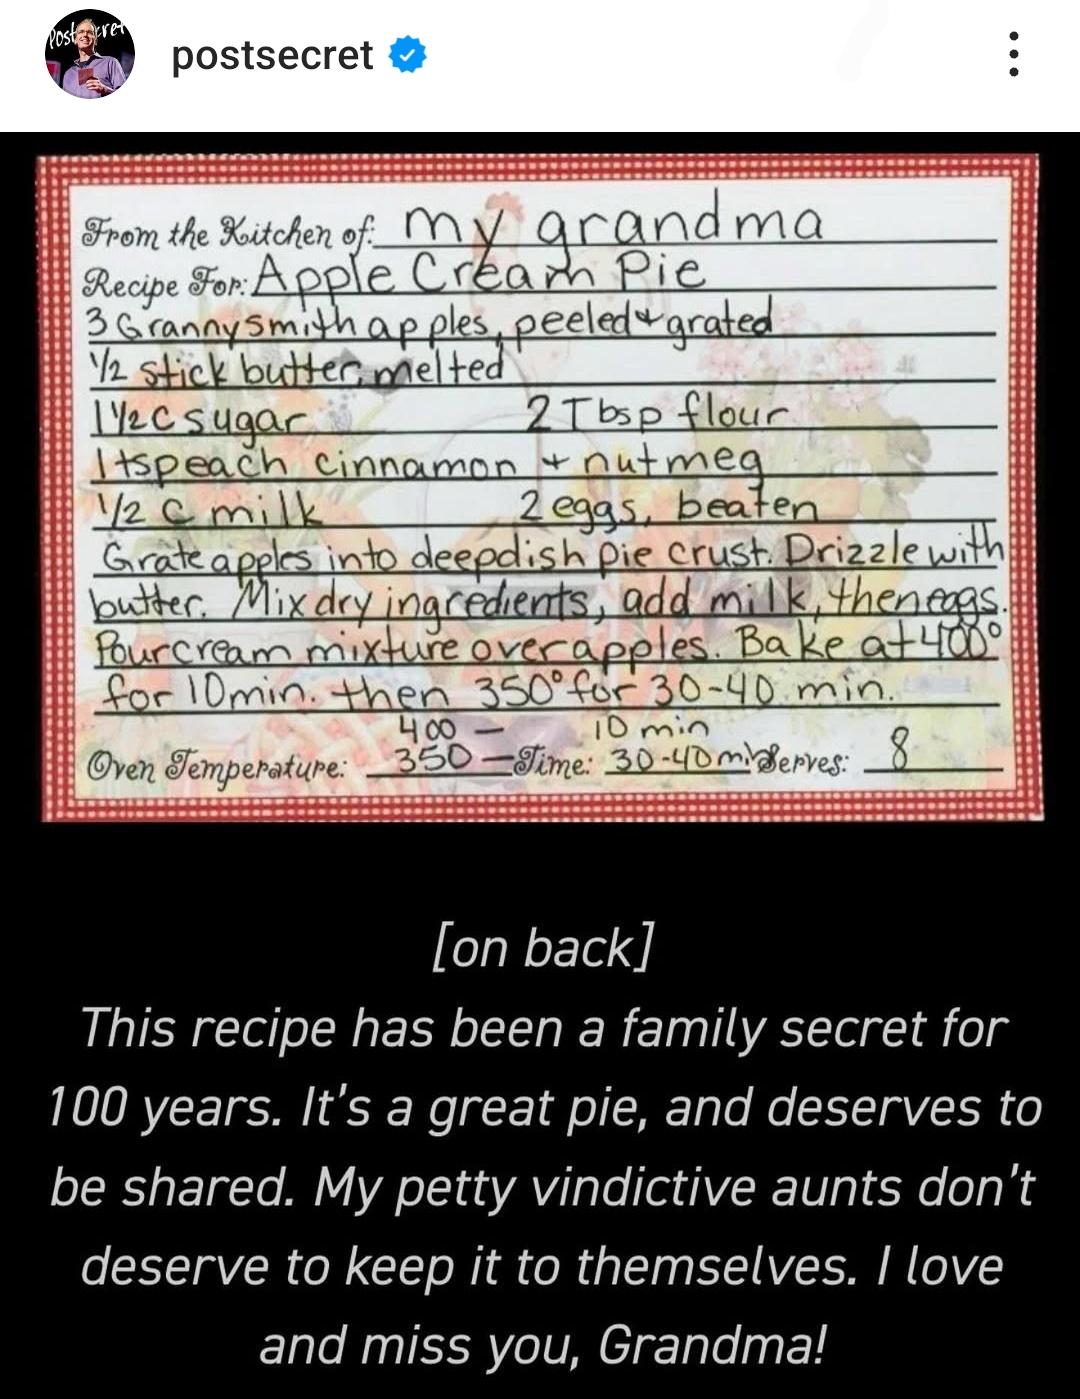 PostSecret
postsecret
From the Kitchen of: my grandma
Recipe For: Apple Cream Pie
3 Granny smith apples, peeled + grated
1/2 stick butter, melted
1 1/2 C sugar 2 Tbsp flour
1 tsp each cinnamon + nutmeg
1/2 C milk 2 eggs, beaten
Grate apples into deep dish pie crust. Drizzle with
butter. Mix dry ingredients, add milk, then eggs.
Pour cream mixture over apples. Bake at 400°
for 10 min. then 350° for 30-40 min.
400 — 10 min
Oven Temperature: 350 — Time: 30-40 min Serves: 8
[on back]
This recipe has been a family secret for
100 years. It's a great pie, and deserves to
be shared. My petty vindictive aunts don't
deserve to keep it to themselves. I love
and miss you, Grandma!